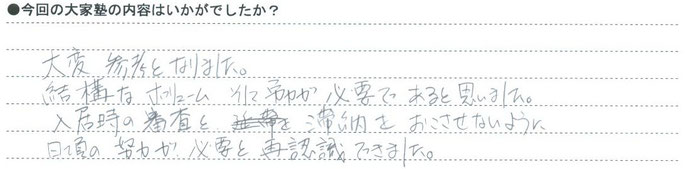 ●今回の大家塾の内容はいかがでしたか？
大変 参考となりました。
結構な ボリューム そして 努力が 必要で あると思いました。
入居時の審査と 滞納を おこさせないように
日頃の 努力が 必要と 再認識できました。